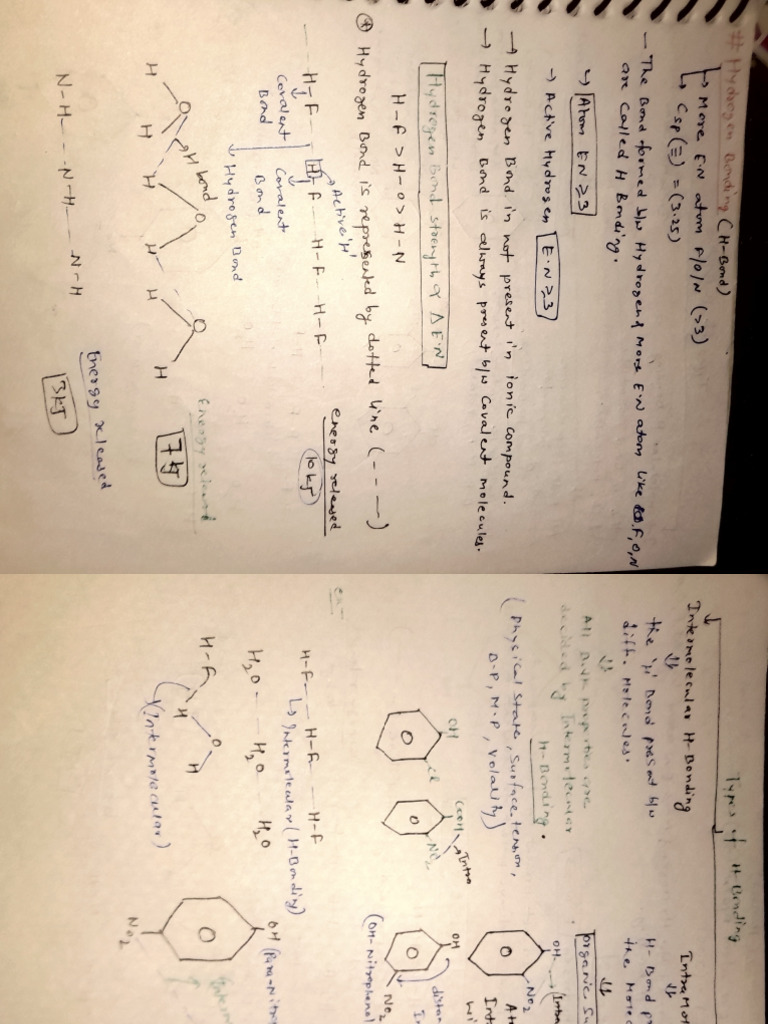 # Hydrogen Bonding (H-Bond)
↳ More E.N atom F/O/N (>3)
↳ Csp(≡) = (3.25)
- The Bond formed b/w Hydrogen & More E.N atom like F, O, N
are called H Bonding.
↳ Atom EN ≥ 3
→ Active Hydrogen E.N ≥ 3
→ Hydrogen Bond in not present in ionic compound.
→ Hydrogen Bond is always present b/w Covalent molecules.
Hydrogen Bond strength ∝ ΔE.N
H-F > H-O > H-N
* Hydrogen Bond is represented by dotted line (- - -)
Active 'H'
--- H-F --- H-F --- H-F --- H-F ---
Covalent Bond
Covalent Bond
↓ Hydrogen Bond
energy released
10 kJ
H bond
H O H H O H H O H
Energy released
7 kJ
N-H --- N-H --- N-H
Energy released
3 kJ
Types of H-Bonding
Intermolecular H-Bonding
the 'H' Bond present b/w
diff. Molecules.
All Bulk properties are
decided by Intermolecular
H-Bonding.
(Physical State, Surface tension,
B.P, M.P, Volality)
OH
Cl
COOH
NO2
→ Intra
ex-
H-F --- H-F --- H-F
↳ Intermolecular (H-Bonding)
H2O --- H2O --- H2O
H-F
H O H
(Intermolecular)
H-Bond p
the Molec
organic Su
OH
NO2
OH
NO2
(OH-Nitrophenol
OH (Para-Nitro
NO2